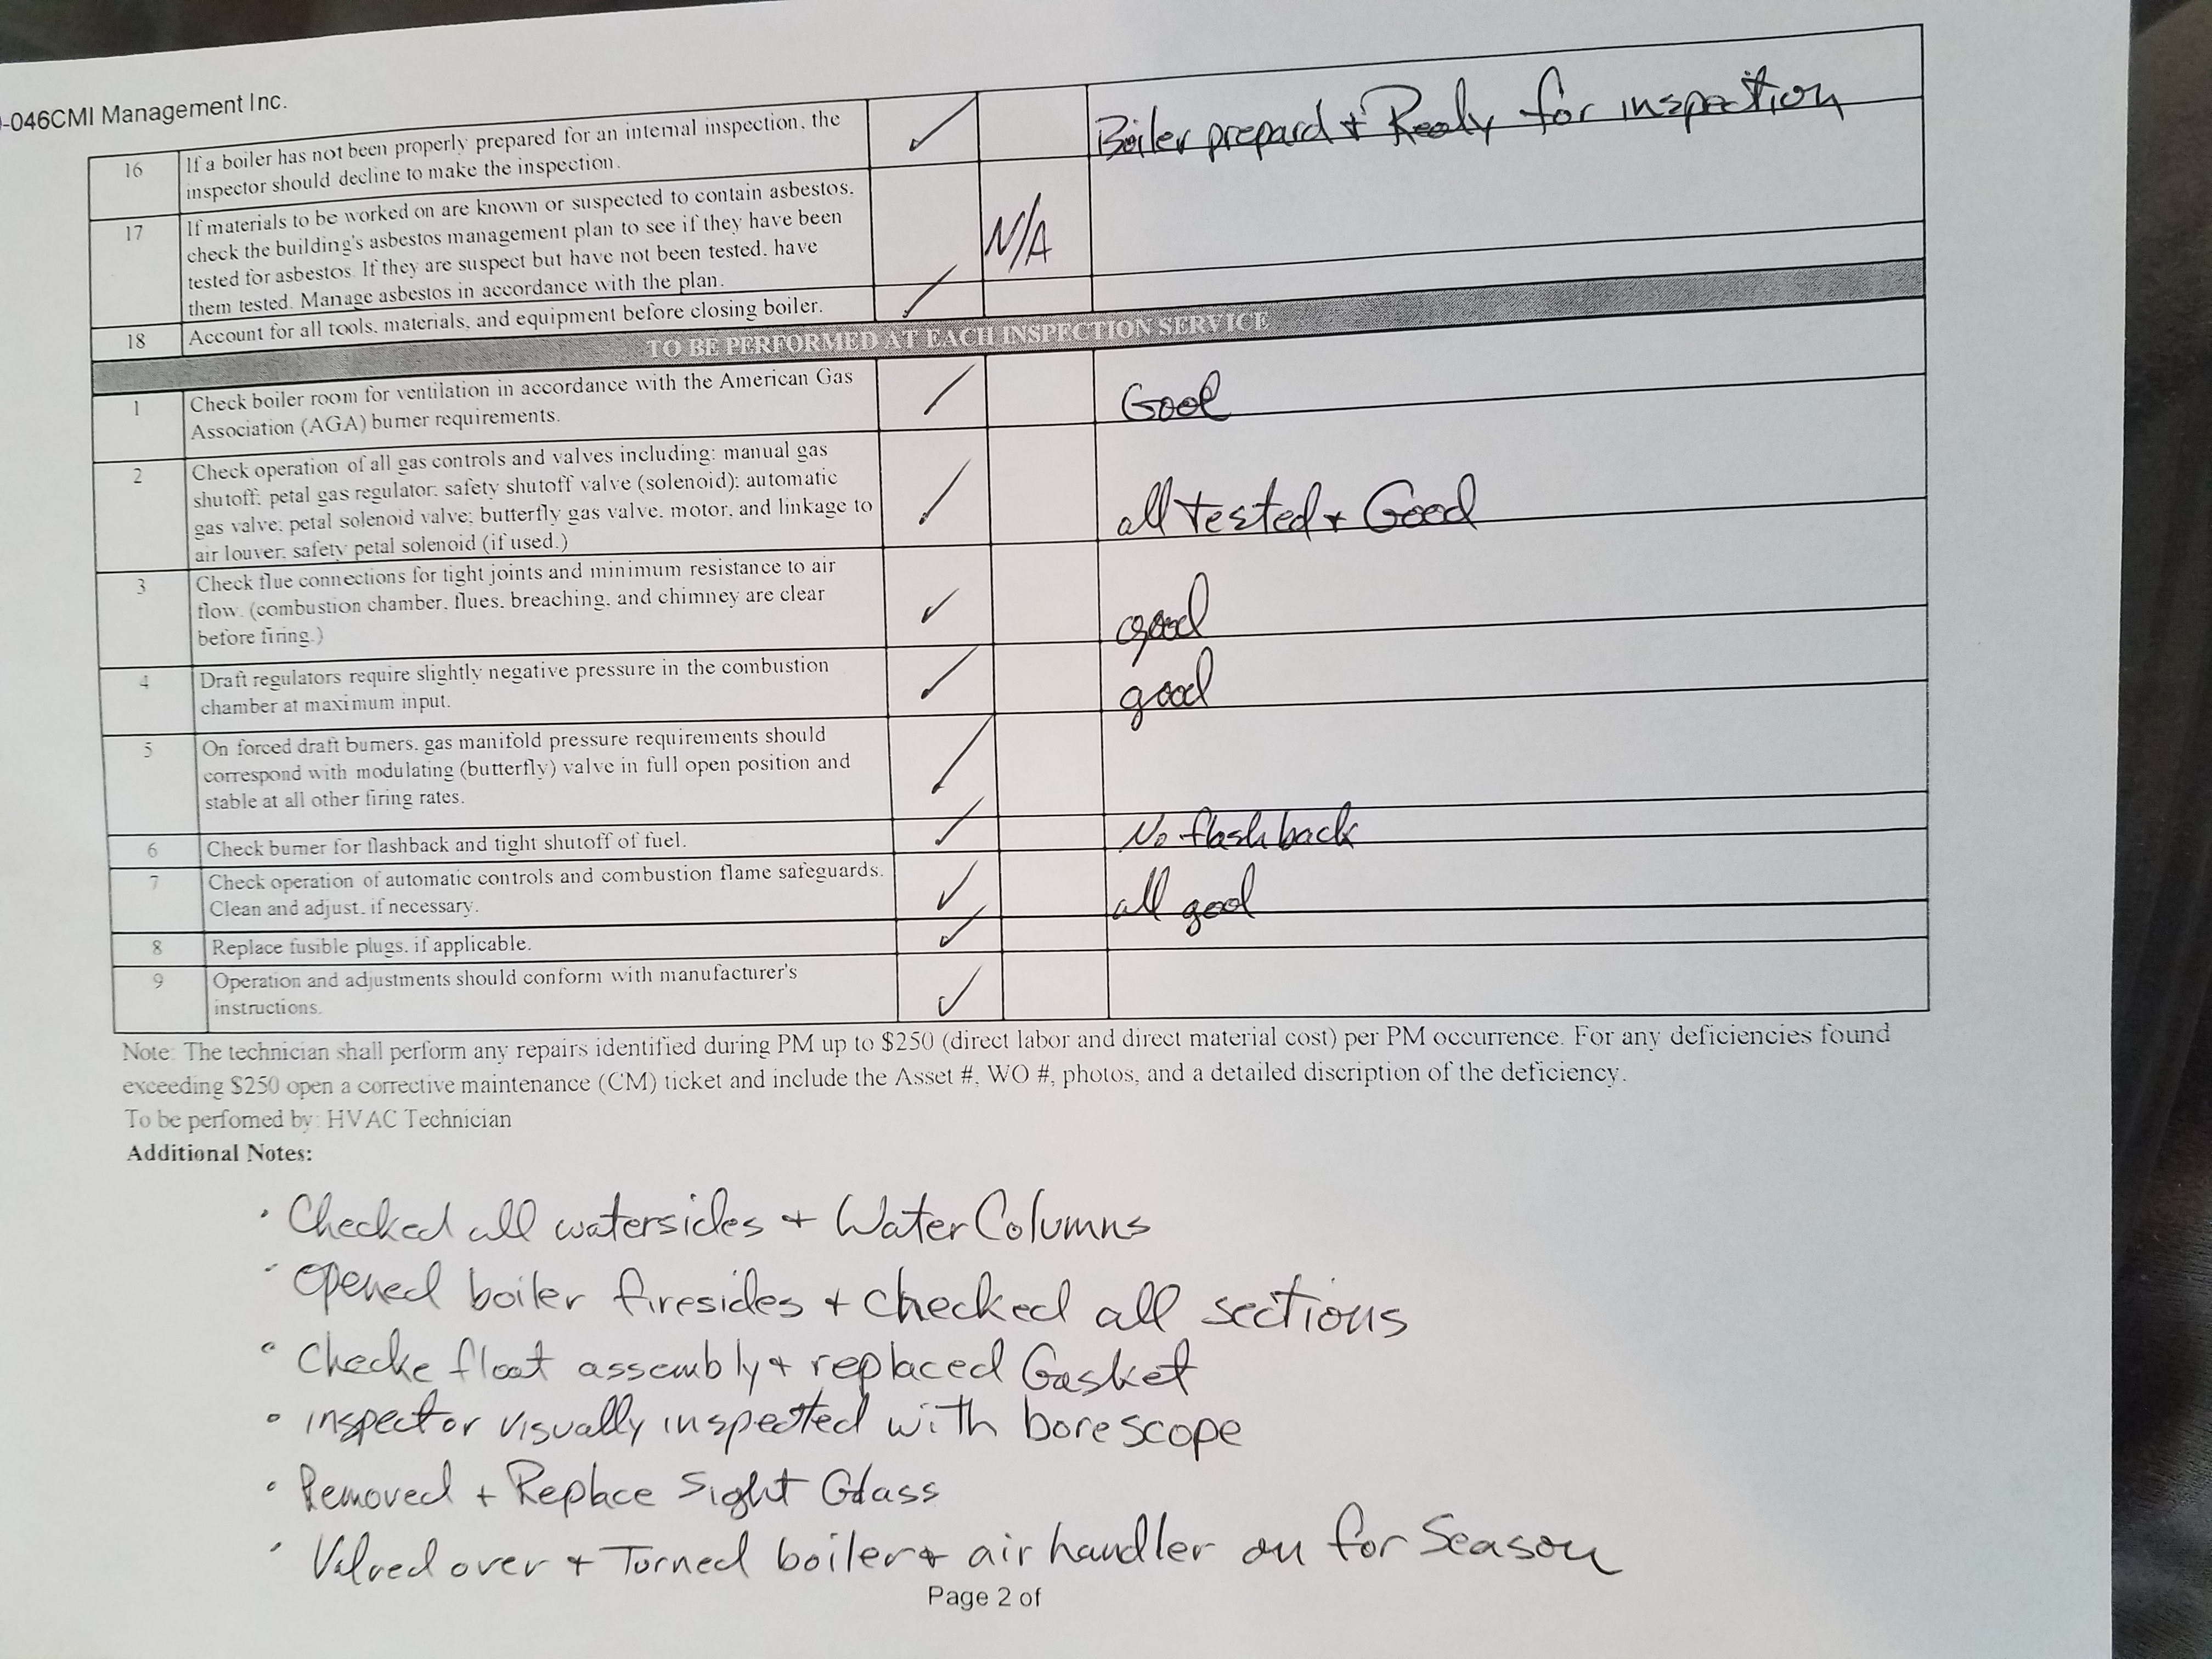 -046CMI Management Inc.
16 If a boiler has not been properly prepared for an internal inspection, the
inspector should decline to make the inspection.
✓ Boiler prepard + Ready for inspection
17 If materials to be worked on are known or suspected to contain asbestos,
check the building's asbestos management plan to see if they have been
tested for asbestos. If they are suspect but have not been tested, have
them tested. Manage asbestos in accordance with the plan.
N/A
18 Account for all tools, materials, and equipment before closing boiler. ✓
TO BE PERFORMED AT EACH INSPECTION SERVICE
1 Check boiler room for ventilation in accordance with the American Gas
Association (AGA) burner requirements.
✓ Good
2 Check operation of all gas controls and valves including: manual gas
shutoff; petal gas regulator; safety shutoff valve (solenoid); automatic
gas valve; petal solenoid valve; butterfly gas valve, motor, and linkage to
air louver; safety petal solenoid (if used.)
✓ all tested + Good
3 Check flue connections for tight joints and minimum resistance to air
flow. (combustion chamber, flues, breaching, and chimney are clear
before firing.)
✓ good
4 Draft regulators require slightly negative pressure in the combustion
chamber at maximum input.
✓ good
5 On forced draft burners, gas manifold pressure requirements should
correspond with modulating (butterfly) valve in full open position and
stable at all other firing rates.
✓
6 Check burner for flashback and tight shutoff of fuel. ✓ No flashback
7 Check operation of automatic controls and combustion flame safeguards.
Clean and adjust, if necessary.
✓ all good
8 Replace fusible plugs, if applicable. ✓
9 Operation and adjustments should conform with manufacturer's
instructions.
✓
Note: The technician shall perform any repairs identified during PM up to $250 (direct labor and direct material cost) per PM occurrence. For any deficiencies found
exceeding $250 open a corrective maintenance (CM) ticket and include the Asset #, WO #, photos, and a detailed discription of the deficiency.
To be perfomed by: HVAC Technician
Additional Notes:
· Checked all watersides + Water Columns
· Opened boiler firesides + checked all sections
· Checke float assembly + replaced Gasket
· inspector visually inspected with borescope
· Removed + Replace Sight Glass
· Valved over + Turned boiler + air handler on for Season
Page 2 of